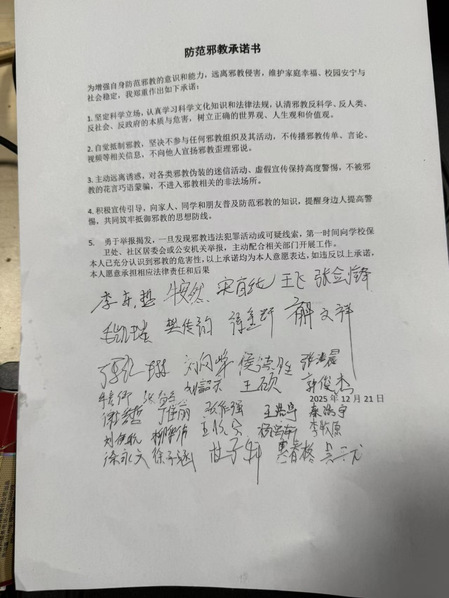 防范邪教承诺书
为增强自身防范邪教的意识和能力，远离邪教侵害，维护家庭幸福、校园安宁与
社会稳定，我郑重作出如下承诺：
1. 坚定科学立场，认真学习科学文化知识和法律法规，认清邪教反科学、反人类、
反社会、反政府的本质与危害，树立正确的世界观、人生观和价值观。
2. 自觉抵制邪教，坚决不参与任何邪教组织及其活动，不传播邪教传单、言论、
视频等相关信息，不向他人宣扬邪教歪理邪说。
3. 主动远离诱惑，对各类邪教伪装的迷信活动、虚假宣传保持高度警惕，不被邪
教的花言巧语蒙骗，不进入邪教相关的非法场所。
4. 积极宣传引导，向家人、同学和朋友普及防范邪教的知识，提醒身边人提高警
惕，共同筑牢抵御邪教的思想防线。
5. 勇于举报揭发，一旦发现邪教违法犯罪活动或可疑线索，第一时间向学校保
卫处、社区居委会或公安机关举报，主动配合相关部门开展工作。
本人已充分认识到邪教的危害性，以上承诺均为本人意愿表达，如违反以上承诺，
本人愿意承担相应法律责任和后果
李东哲 王飞
文祥
侯德胜
王硕 郭俊杰
2025 年 12 月 21 日
李牧原
涂永六 徐子涵